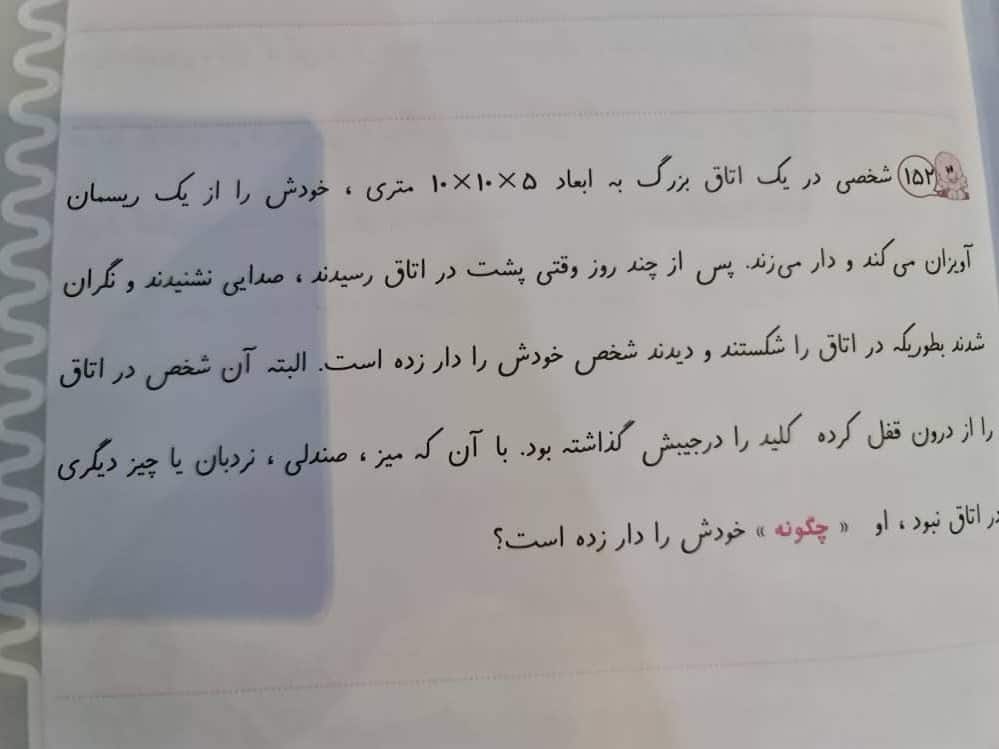 ۱۵۲ شخصی در یک اتاق بزرگ به ابعاد ۵×۱۰×۱۰ متری ، خودش را از یک ریسمان
آویزان می کند و دار می‌زند. پس از چند روز وقتی پشت در اتاق رسیدند ، صدایی نشنیدند و نگران
شدند بطوریکه در اتاق را شکستند و دیدند شخص خودش را دار زده است. البته آن شخص در اتاق
را از درون قفل کرده کلید را درجیبش گذاشته بود. با آن که میز ، صندلی ، نردبان یا چیز دیگری
در اتاق نبود ، او « چگونه » خودش را دار زده است؟